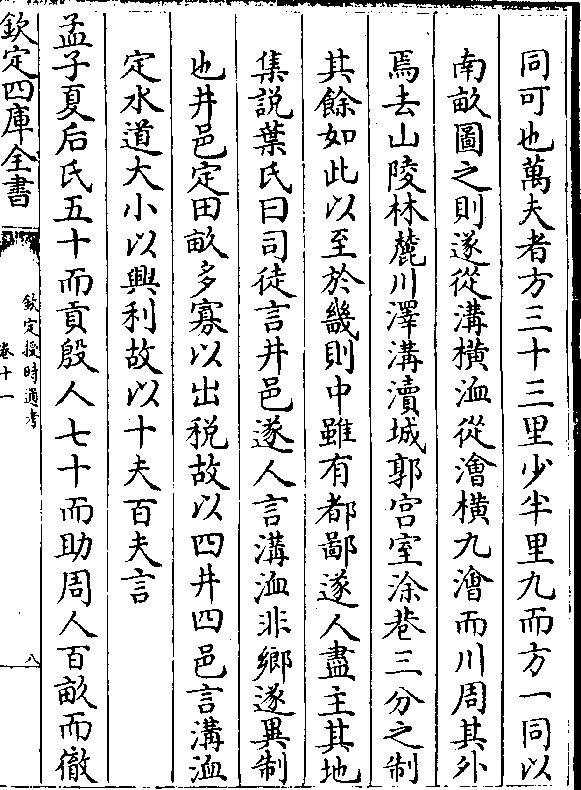 同可也萬夫者方三十三里少半里九而方一同以
南畝圖之則遂從溝横洫從澮横九澮而川周其外
焉去山陵林麓川澤溝瀆城郭宫室涂巷三分之制
其餘如此以至於畿則中雖有都鄙遂人盡主其地
集說葉氏曰司徒言井邑遂人言溝洫非鄉遂異制
也井邑定田畝多寡以出税故以四井四邑言溝洫
定水道大小以興利故以十夫百夫言
孟子夏后氏五十而貢殷人七十而助周人百畝而徹
欽定四庫全書
欽定授時通考
卷十一
八